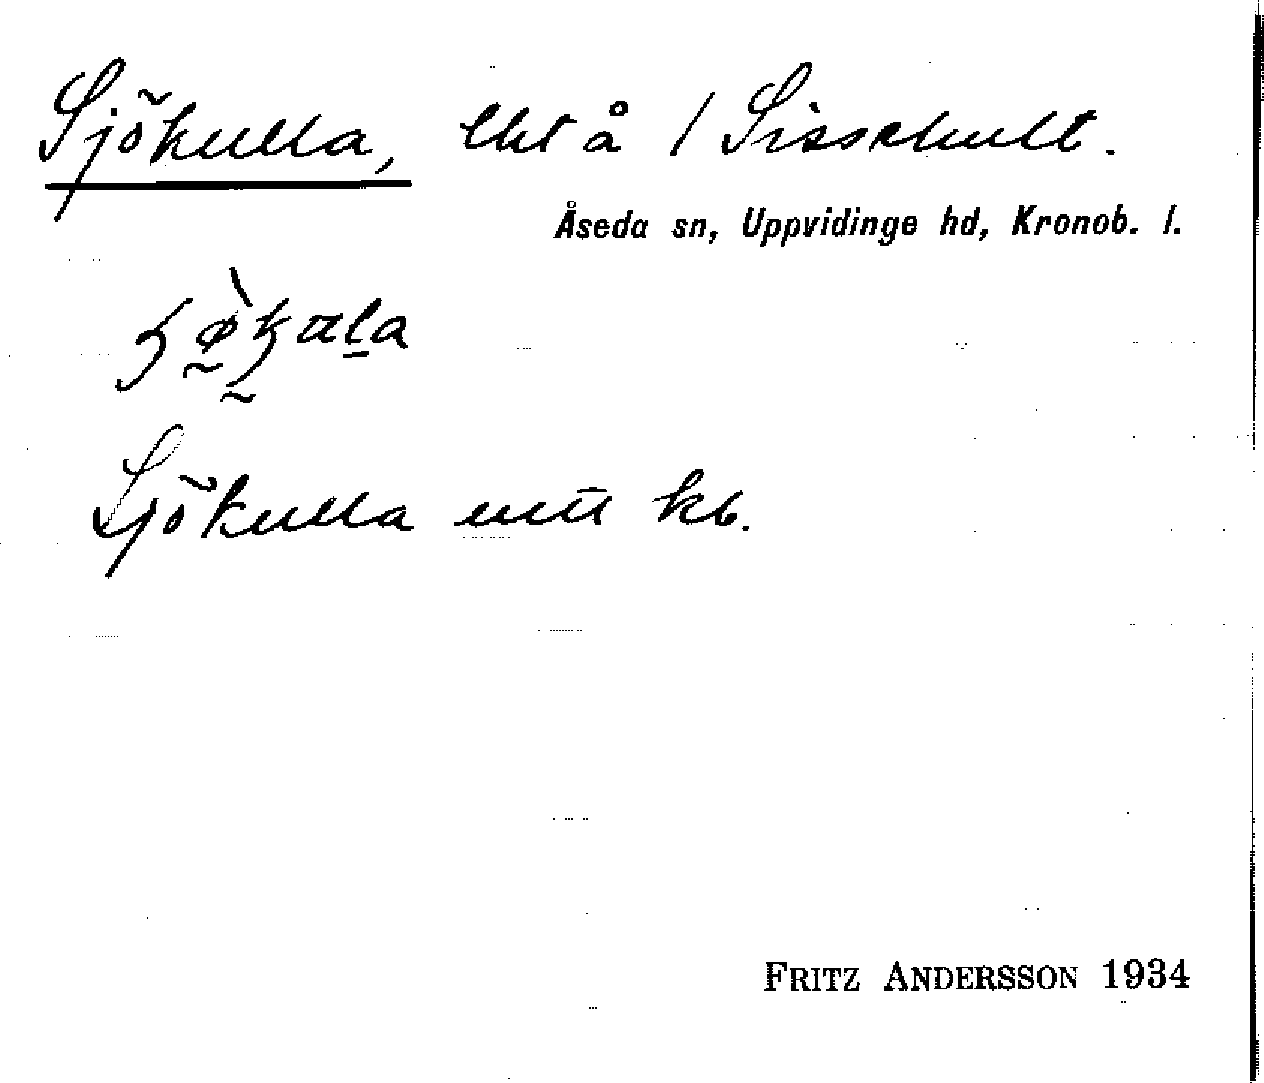 Sjökulla, lht å / Sissehult.
Åseda sn, Uppvidinge hd, Kronob. l.
Sjökulla kb.
FRITZ ANDERSSON 1934